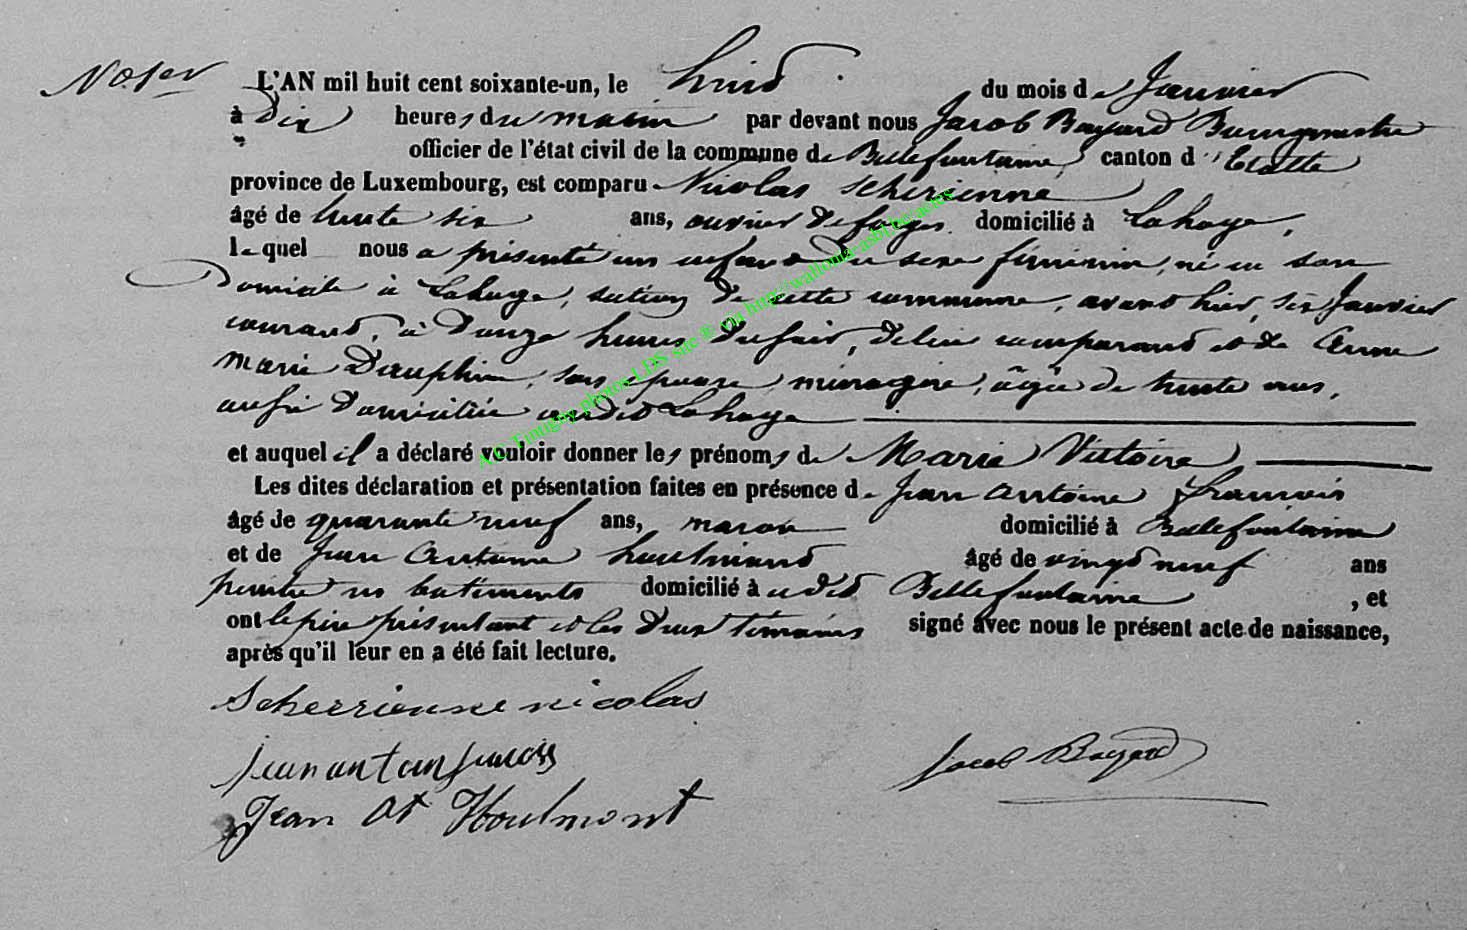 No 1er L'AN mil huit cent soixante-un, le huit du mois de Janvier
à Dix heures du matin par devant nous Jacob Bayard Bourgmestre
officier de l'état civil de la commune de Bellefontaine, canton d'Etalle
province de Luxembourg, est comparu Nicolas Scherienne
âgé de trente six ans, ouvrier de forges domicilié à Lahage,
lequel nous a présenté un enfant du sexe féminin, né en son
Domicile à Lahage, section de cette commune, avant hier, six Janvier
courant, à onze heures du soir, de lui comparant et de Anne
marie Dauphin, son épouse, ménagère, âgée de trente ans,
aussi domiciliée audit Lahage
et auquel il a déclaré vouloir donner les prénoms de Marie Victoire
Les dites déclaration et présentation faites en présence de Jean Antoine François
âgé de quarante neuf ans, maçon domicilié à Bellefontaine
et de Jean Antoine houlmont âgé de vingt neuf ans
peintre en batiments domicilié à udit Bellefontaine, et
ont le père présentant et les deux témoins signé avec nous le présent acte de naissance,
après qu'il leur en a été fait lecture.
Scherrienne nicolas
jean antoin francois
Jacob Bayard
Jean At Houlmont
A.C. Tintigny photos LDS site ® via http://wallonia-asbl.be/actes